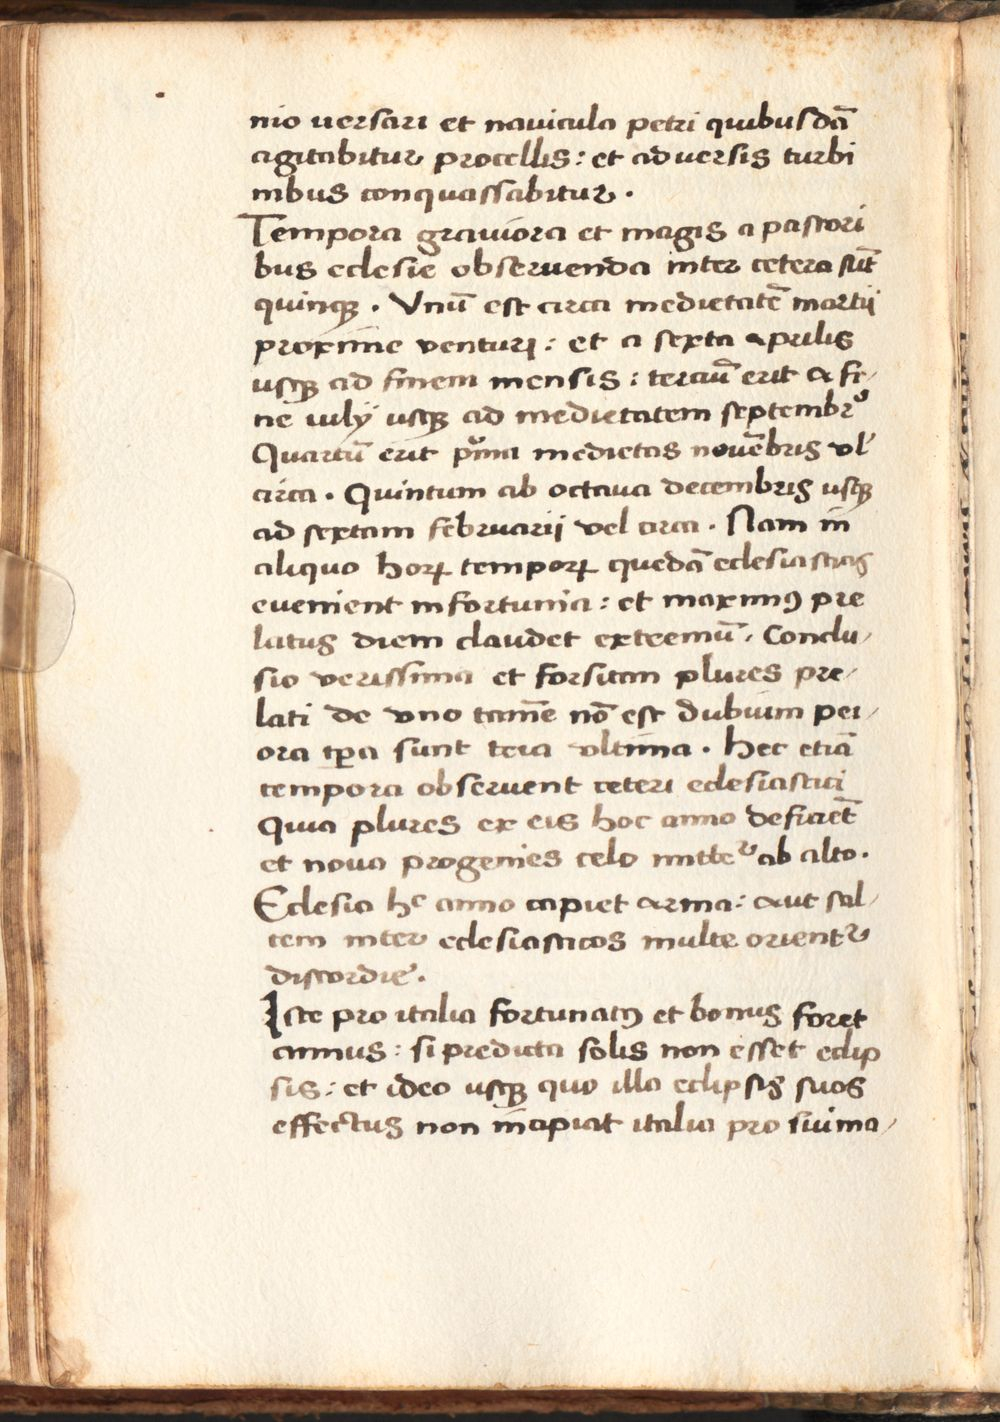 nio uersari et nauicula petri quibusdā
agitabitur procellis: et aduersis turbi
nibus conquassabitur.
Tempora grauiora et magis a pastori
bus eclesie obseruenda inter cetera sūt
quinqꝫ. Vnū est circa medietatē martii
proxime venturi: et a sexta aprilis
usqꝫ ad finem mensis: terciū erit a fi-
ne iulij usqꝫ ad medietatem septembrꝰ
Quartū erit pͦma medietas nouēbris vl'
circa. Quintum ab octaua decembris usqꝫ
ad sextam februarii vel circa. Nam in
aliquo horꝝ temporꝝ quedā eclesiasticis
evenient infortunia: et maximꝰ pre
latus diem claudet exteemū. Conclu-
sio verissima et forsitan plures pre-
lati de vno tamē nō est dubium pei-
ora tp̄a sunt tria vltima. hec etiā
tempora obseruent ceteri eclesiastici
Quia plures ex eis hoc anno deficiēt
et noua progenies celo mittetᷣ ab alto.
Eclesia hᶜ anno capiet arma: aut sal-
tem inter eclesiasticos multe orientᷣ
discordie.
Iste pro italia fortunatꝰ et bonus foret
annus: si predicta solis non esset eclip
sis: et ideo usqꝫ quo illa eclipsis suos
effectus non incipiat italia pro siuima-